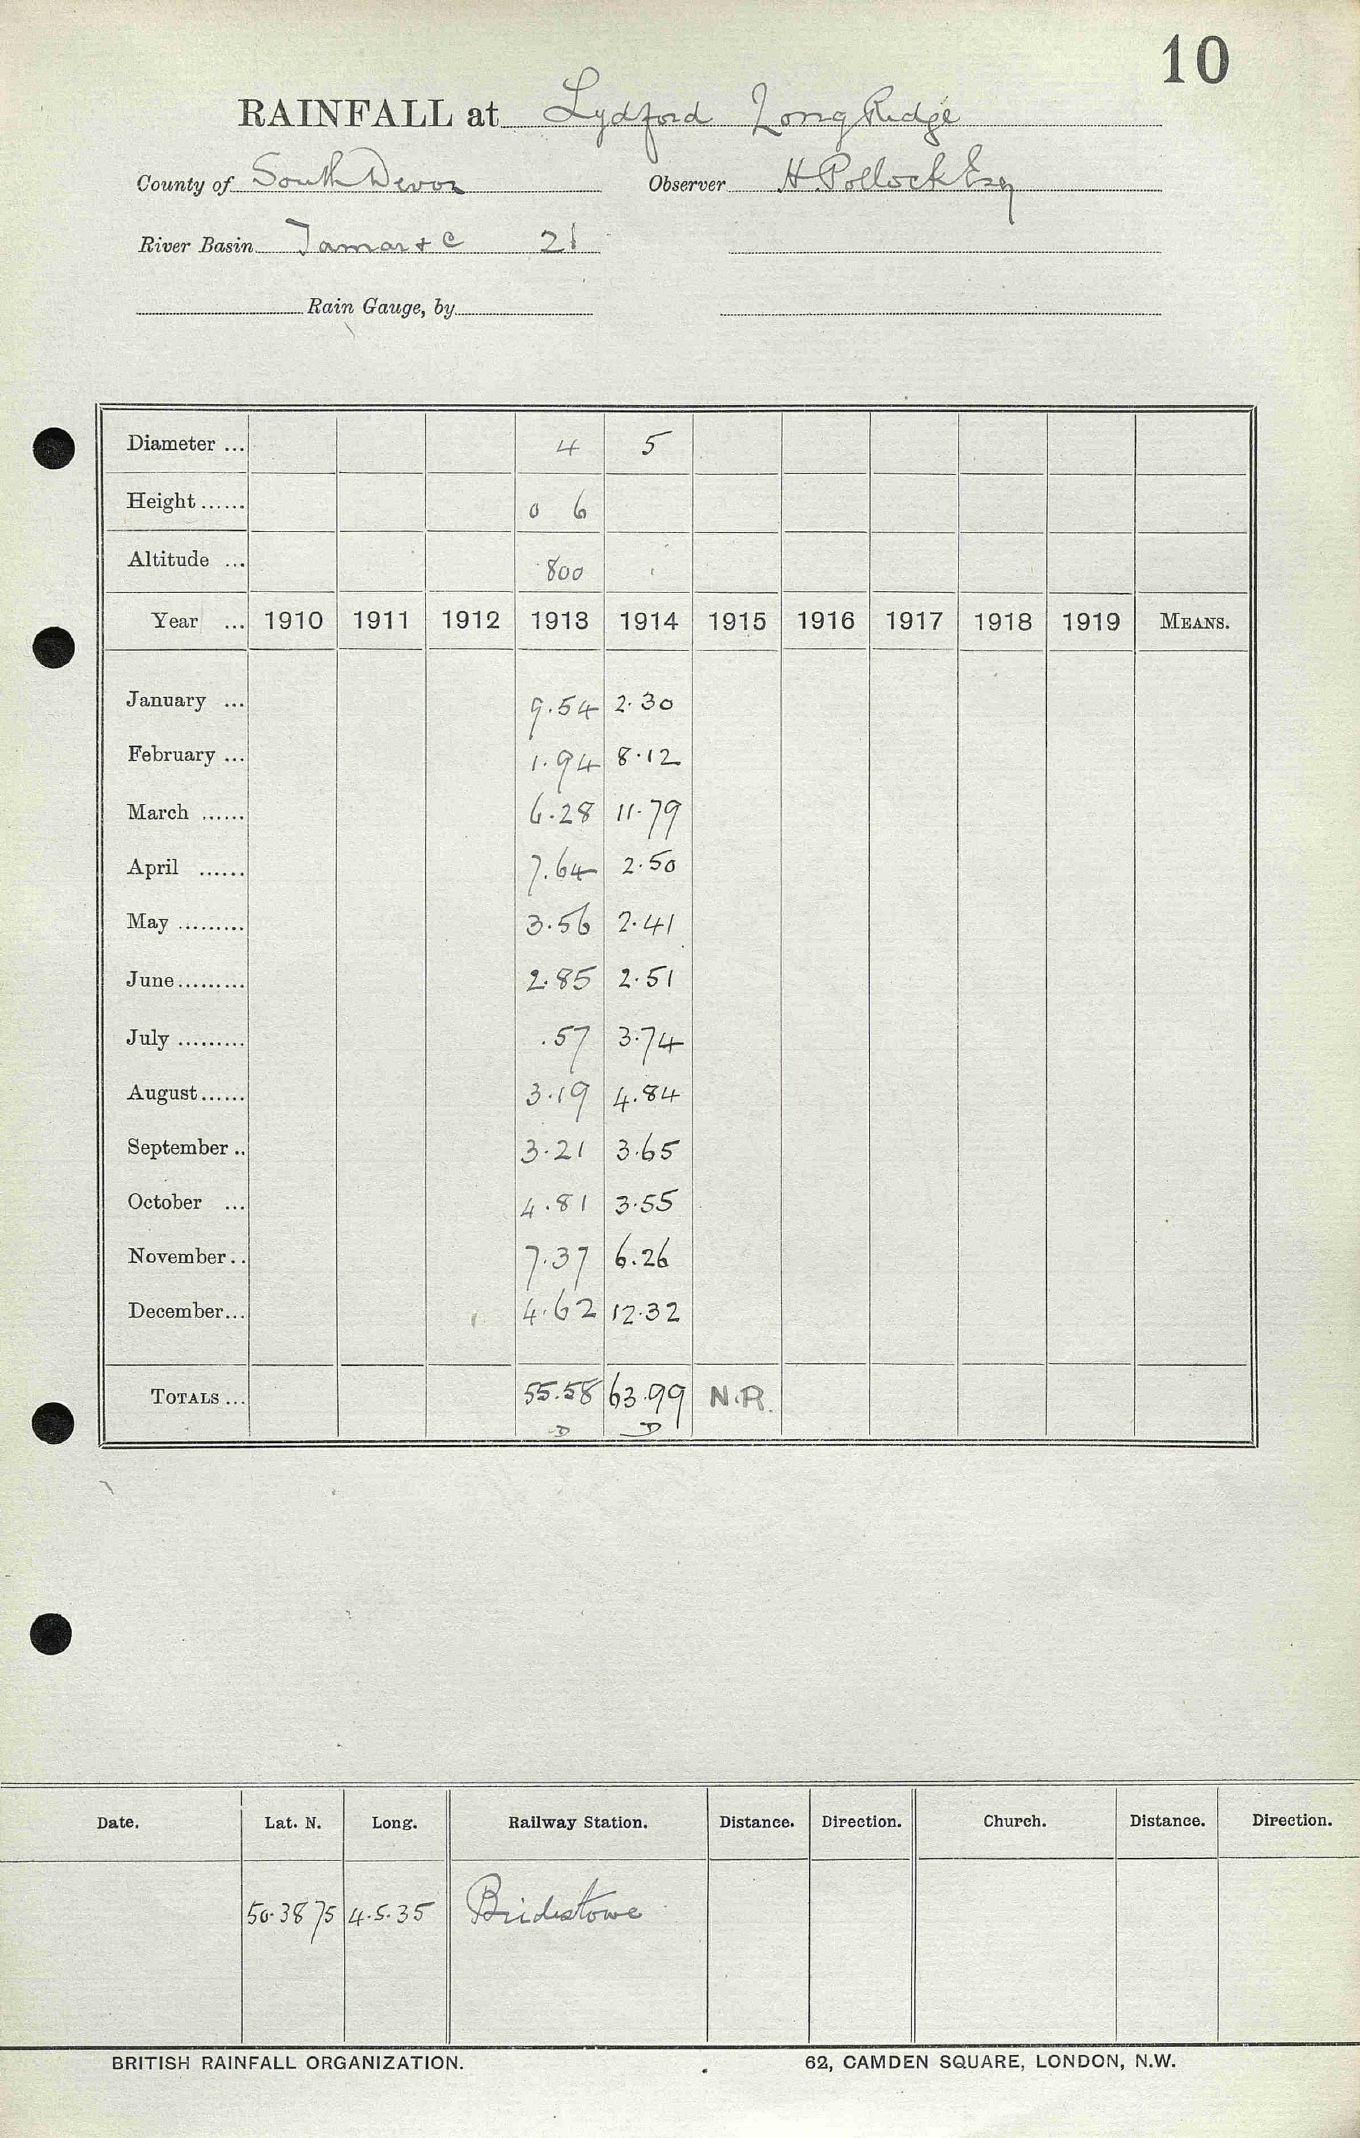 10
RAINFALL at Lydford Long Ridge
County of South Devon Observer H. Pollock Esq
River Basin Tamar & c 21
Rain Gauge, by
Diameter ... 4 5
Height ...... 0 6
Altitude ... 800
Year ... 1910 1911 1912 1913 1914 1915 1916 1917 1918 1919 MEANS.
January ... 9.54 2.30
February ... 1.94 8.12
March ...... 6.28 11.79
April ...... 7.64 2.50
May ......... 3.56 2.41
June ......... 2.85 2.51
July ......... .57 3.74
August ...... 3.19 4.84
September .. 3.21 3.65
October ... 4.81 3.55
November .. 7.37 6.26
December ... 4.62 12.32
TOTALS ... 55.58 63.99 N.R.
D D
Date. Lat. N. Long. Railway Station. Distance. Direction. Church. Distance. Direction.
50.38 75 4.5.35 Bridestowe
BRITISH RAINFALL ORGANIZATION. 62, CAMDEN SQUARE, LONDON, N.W.